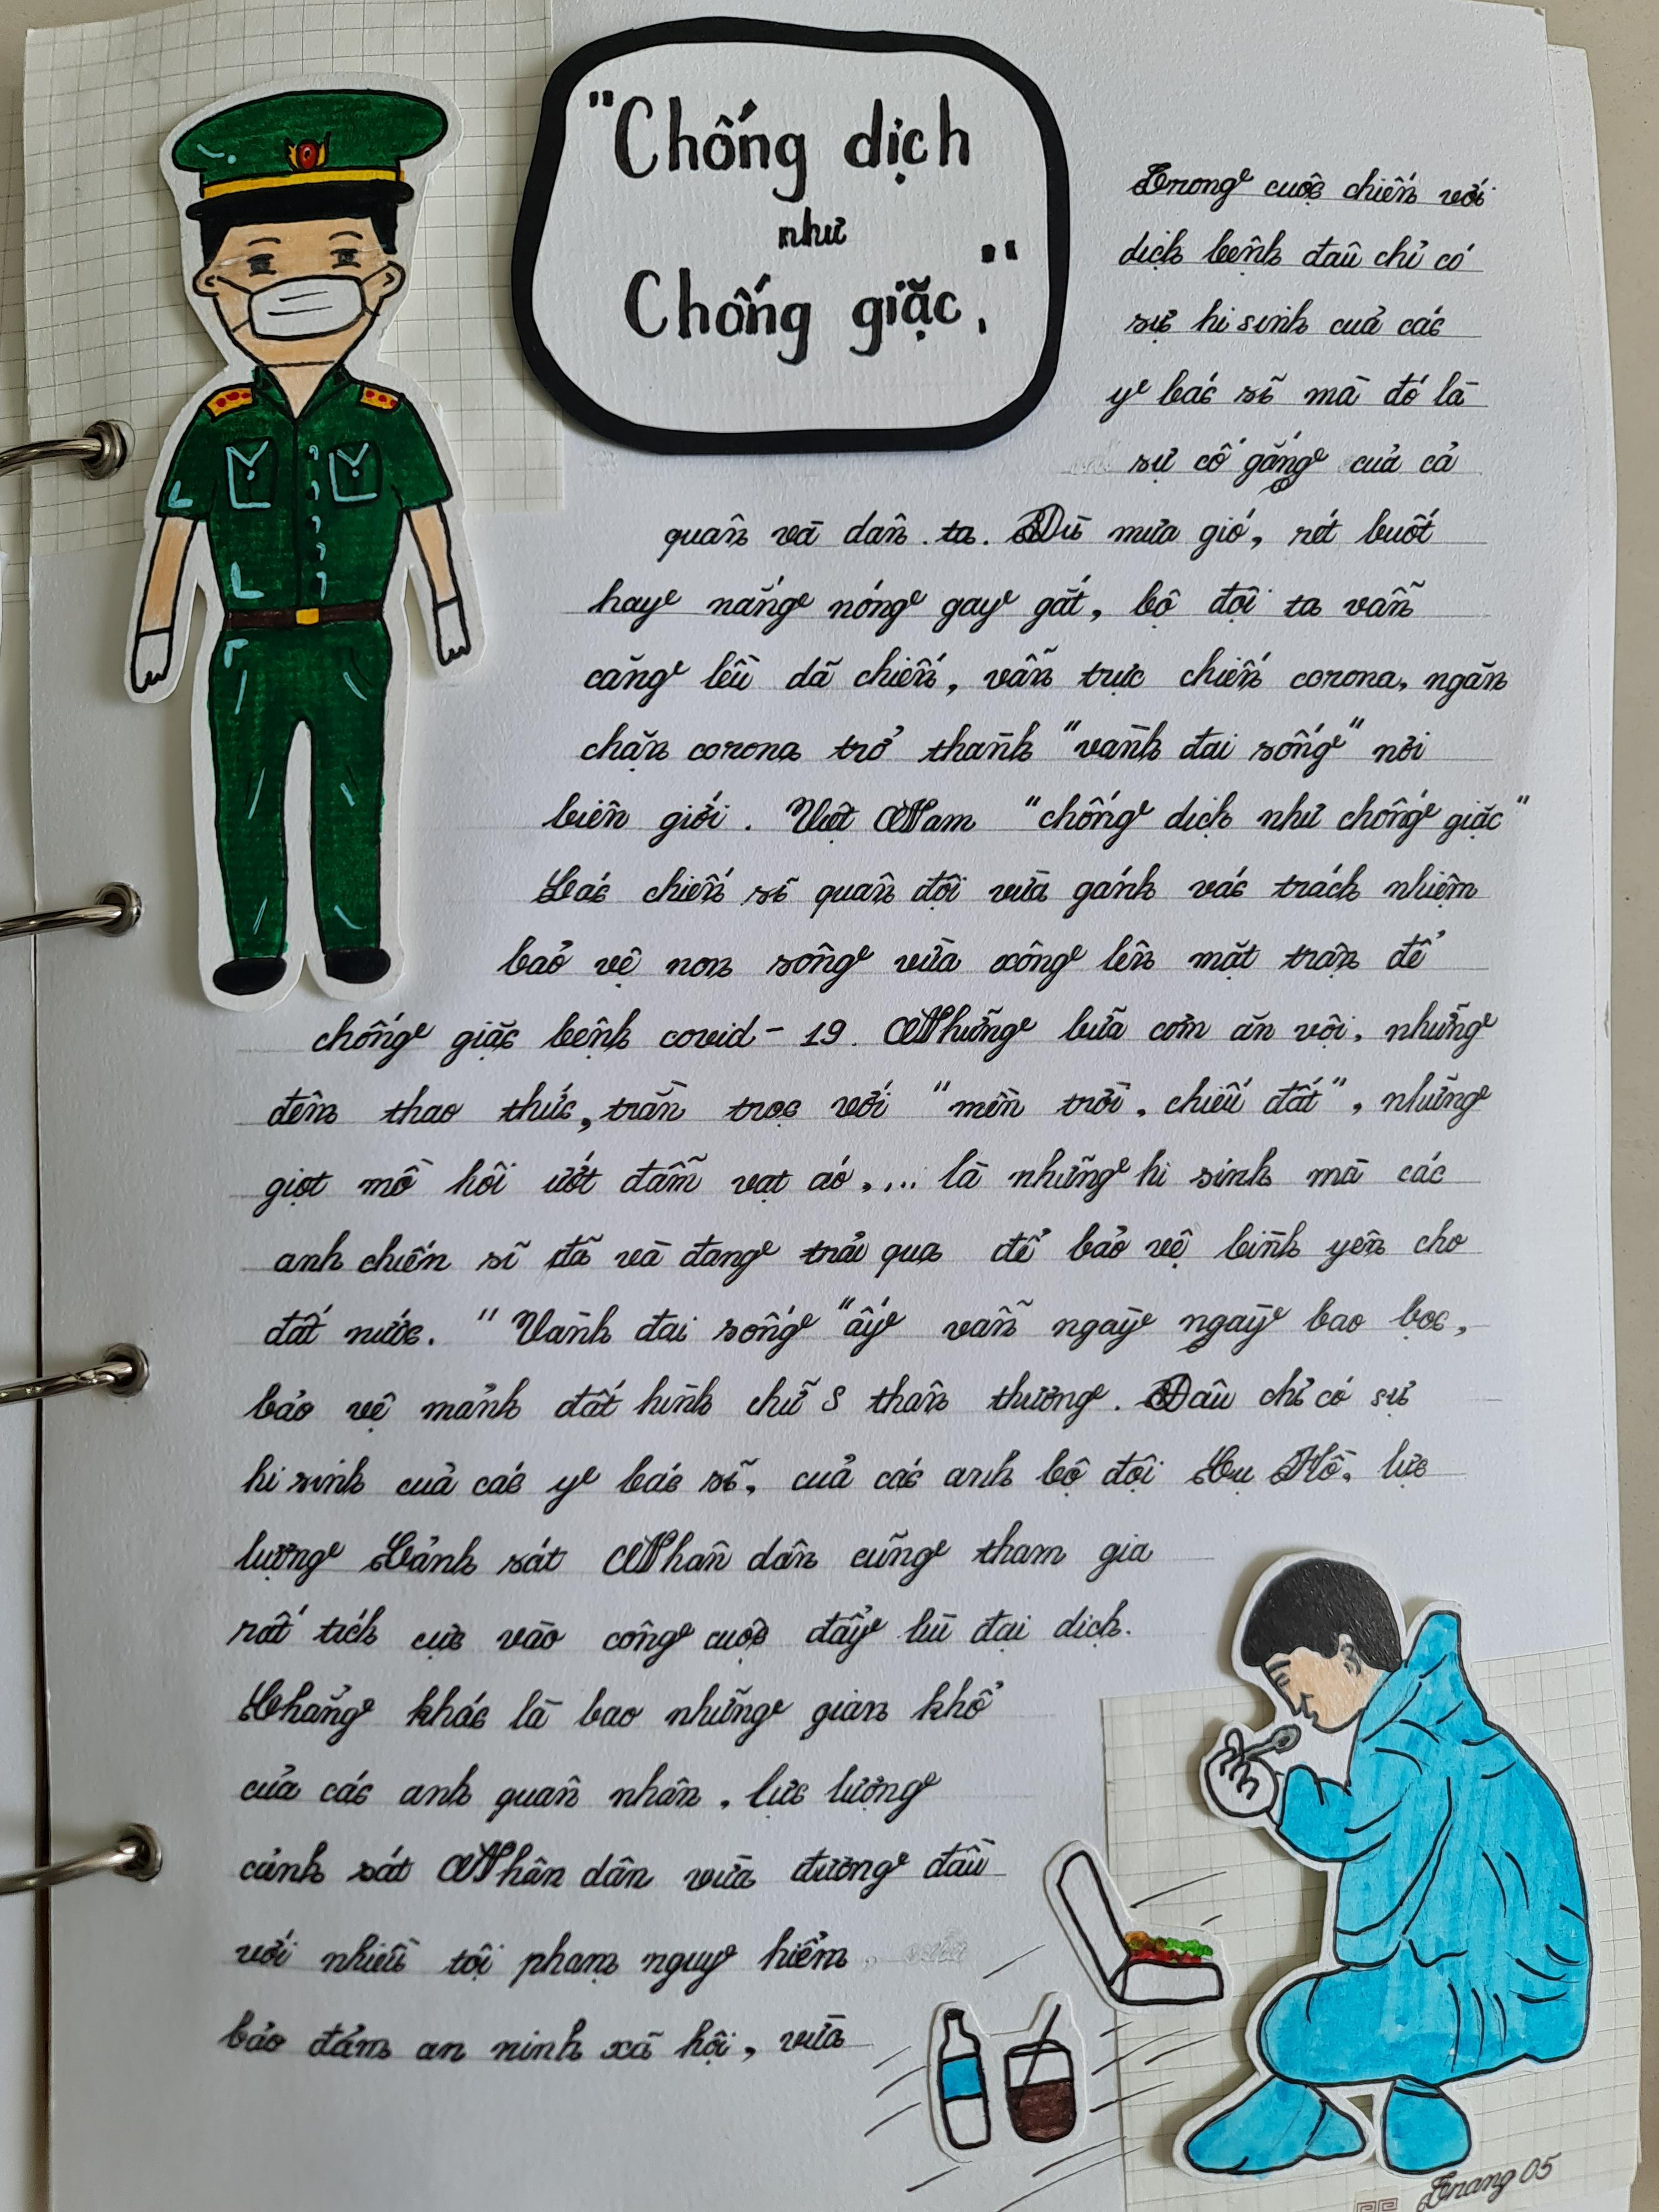 "Chống dịch
như
Chống giặc."
Trong cuộc chiến với
dịch bệnh đâu chỉ có
sự hi sinh của các
y bác sĩ mà đó là
sự cố gắng của cả
quân và dân ta. Dù mưa gió, rét buốt
hay nắng nóng gay gắt, bộ đội ta vẫn
căng lều dã chiến, vẫn trực chiến corona, ngăn
chặn corona trở thành "vành đai sống" nơi
biên giới. Việt Nam "chống dịch như chống giặc"
Các chiến sĩ quân đội vừa gánh vác trách nhiệm
bảo vệ non sông vừa xông lên mặt trận để
chống giặc bệnh covid-19. Những bữa cơm ăn vội, những
đêm thao thức, trằn trọc với "mền trời, chiếu đất", những
giọt mồ hôi ướt đẫm vạt áo,... là những hi sinh mà các
anh chiến sĩ đã và đang trải qua để bảo vệ bình yên cho
đất nước. "Vành đai sống" ấy vẫn ngày ngày bao bọc,
bảo vệ mảnh đất hình chữ S thân thương. Đâu chỉ có sự
hi sinh của các y bác sĩ, của các anh bộ đội Cụ Hồ, lực
lượng Cảnh sát Nhân dân cũng tham gia
rất tích cực vào công cuộc đẩy lùi đại dịch.
Chẳng khác là bao những gian khổ
của các anh quân nhân, lực lượng
cảnh sát Nhân dân vừa đương đầu
với nhiều tội phạm nguy hiểm
bảo đảm an ninh xã hội, vừa
Trang 05